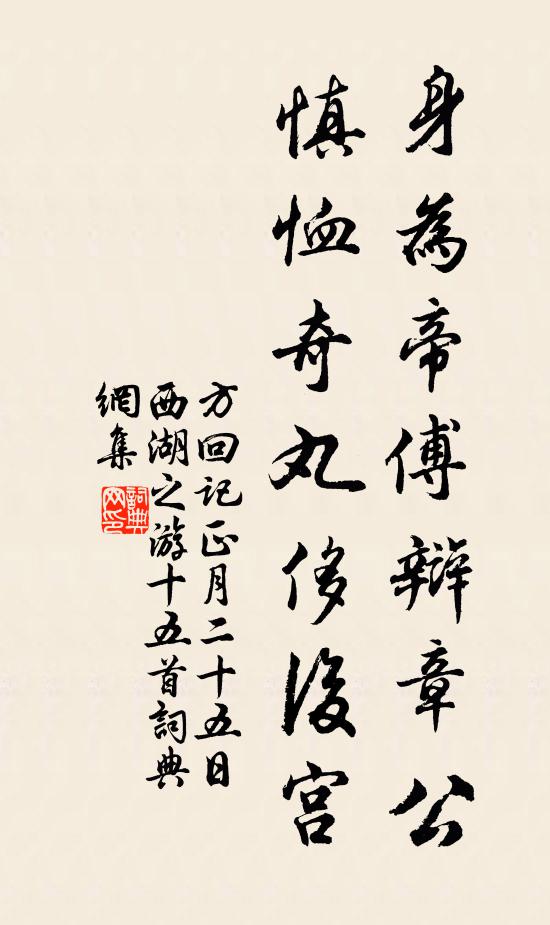 身為帝傅辯章公
慎恤奇丸侈後宮
方回記正月二十五日
西湖之游十五首詞典
網集
詞典網印